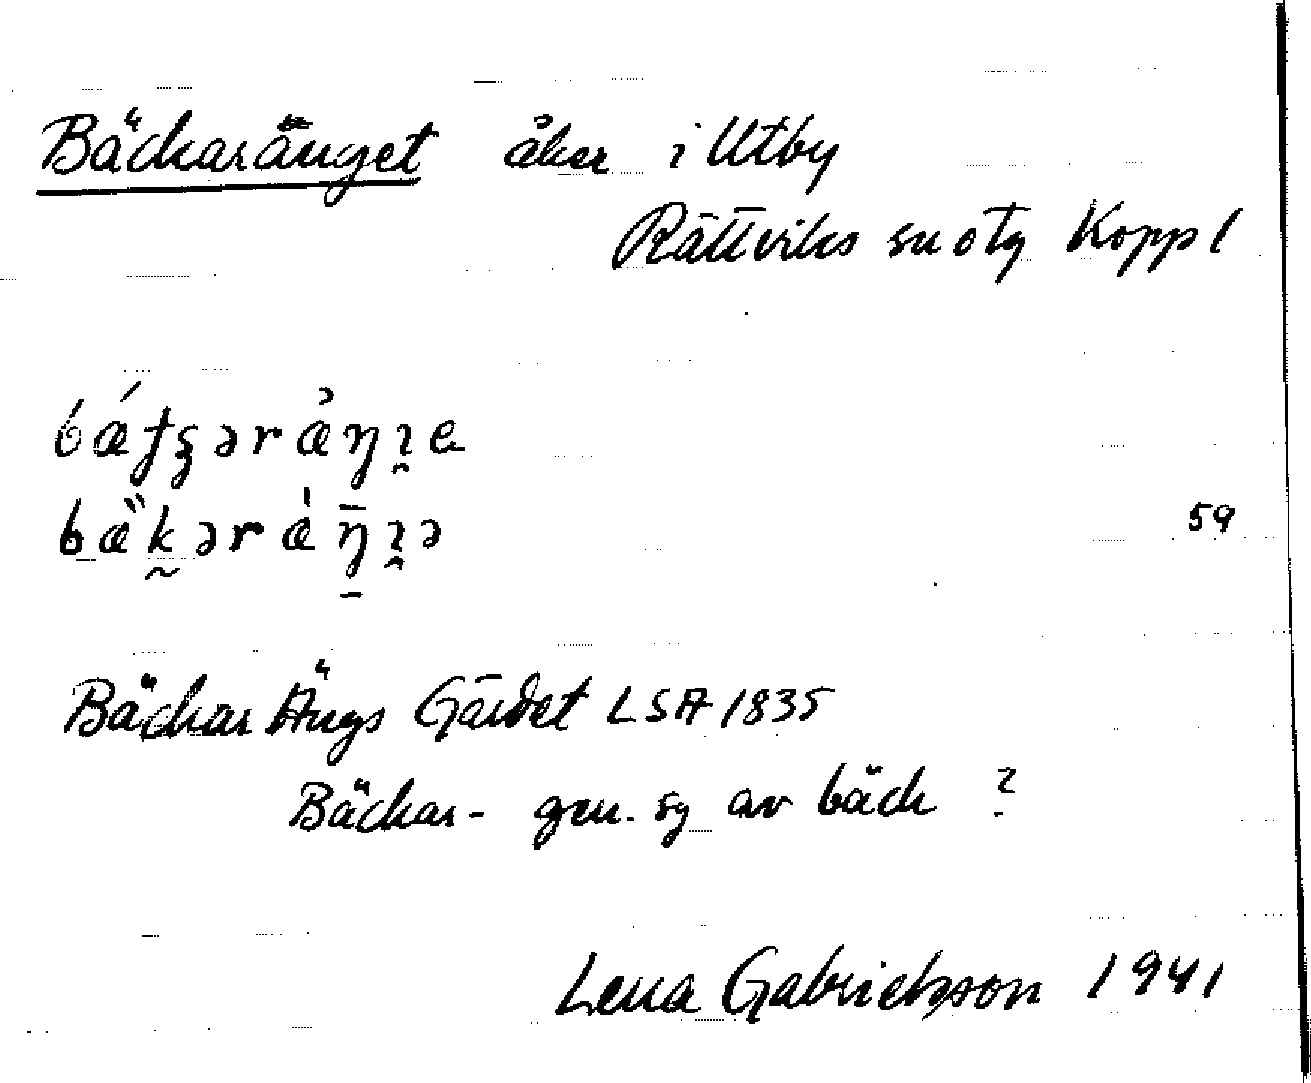 Bäckaränget åker i Utby
Rättviks sn o tg Kopp l
bæ̋k̰əræ̀ŋ̄ı̯ə
59
Bäckar Ängs Gärdet LSA 1835
Bäckar- gen. sg av bäck ?
Lena Gabrielsson 1941